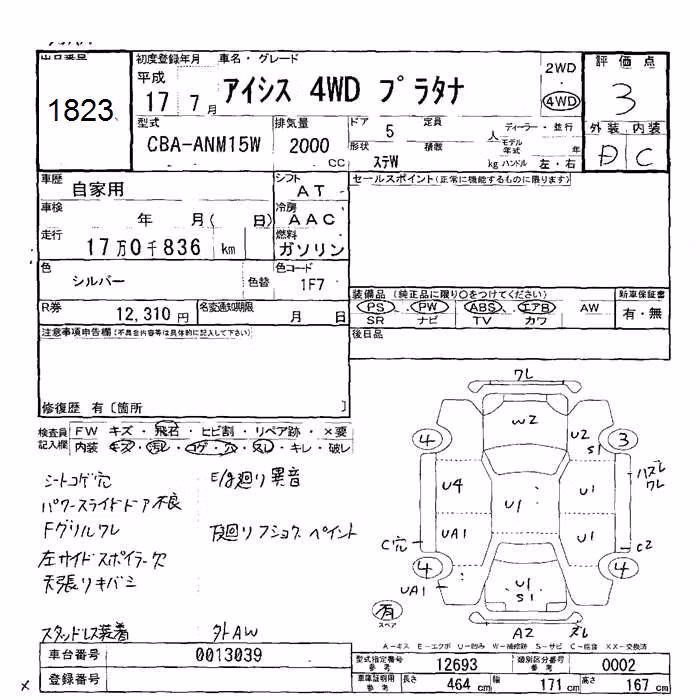 1823
初度登録年月 車名・グレード
平成 17 7月
アイシス 4WD プラタナ
2WD
4WD
評価点
3
外装 内装
D C
型式
CBA-ANM15W
排気量
2000 CC
ドア 5 定員 人
形状 ステW 積載 kg
ディーラー・並行
モデル年式 年
ハンドル 左・右
車歴 自家用
シフト AT
セールスポイント(正常に機能するものに限ります)
車検 年 月( 日)
冷房 AAC
走行 17万0千836 km
燃料 ガソリン
色 シルバー 色替
色コード 1F7
装備品 (純正品に限り○をつけてください)
PS PW ABS エアB AW
SR ナビ TV カワ
新車保証書
有・無
R券 12,310円
名変通知期限 月 日
後日品
注意事項申告欄(不具合内容等は具体的に記入して下さい)
修復歴 有〔箇所 〕
検査員記入欄
FW キズ・飛石・ヒビ割・リペア跡・×要
内装 キズ・汚レ・コゲ・穴・スレ・キレ・破レ
シートコゲ穴
パワースライドドア不良
Fグリルワレ
左サイドスポイラー欠
天張リキバミ
スタッドレス装着
E/g廻り異音
下廻りフショク ペイント
外AW
ワレ
W2
4
U2
S1
3
ハズレ
ワレ
U4
U1
U1
UA1
U1
C穴
C2
UA1
4
4
U1
S1
有
スペア
A2
ズレ
A-キズ E-エクボ U-凹み W-補修跡 S-サビ C-腐食 XX-交換済
車台番号 0013039
型式指定番号 参考 12693
類別区分番号 参考 0002
登録番号
車庫証明用 参考 長さ 464 cm 幅 171 cm 高さ 167 cm
x